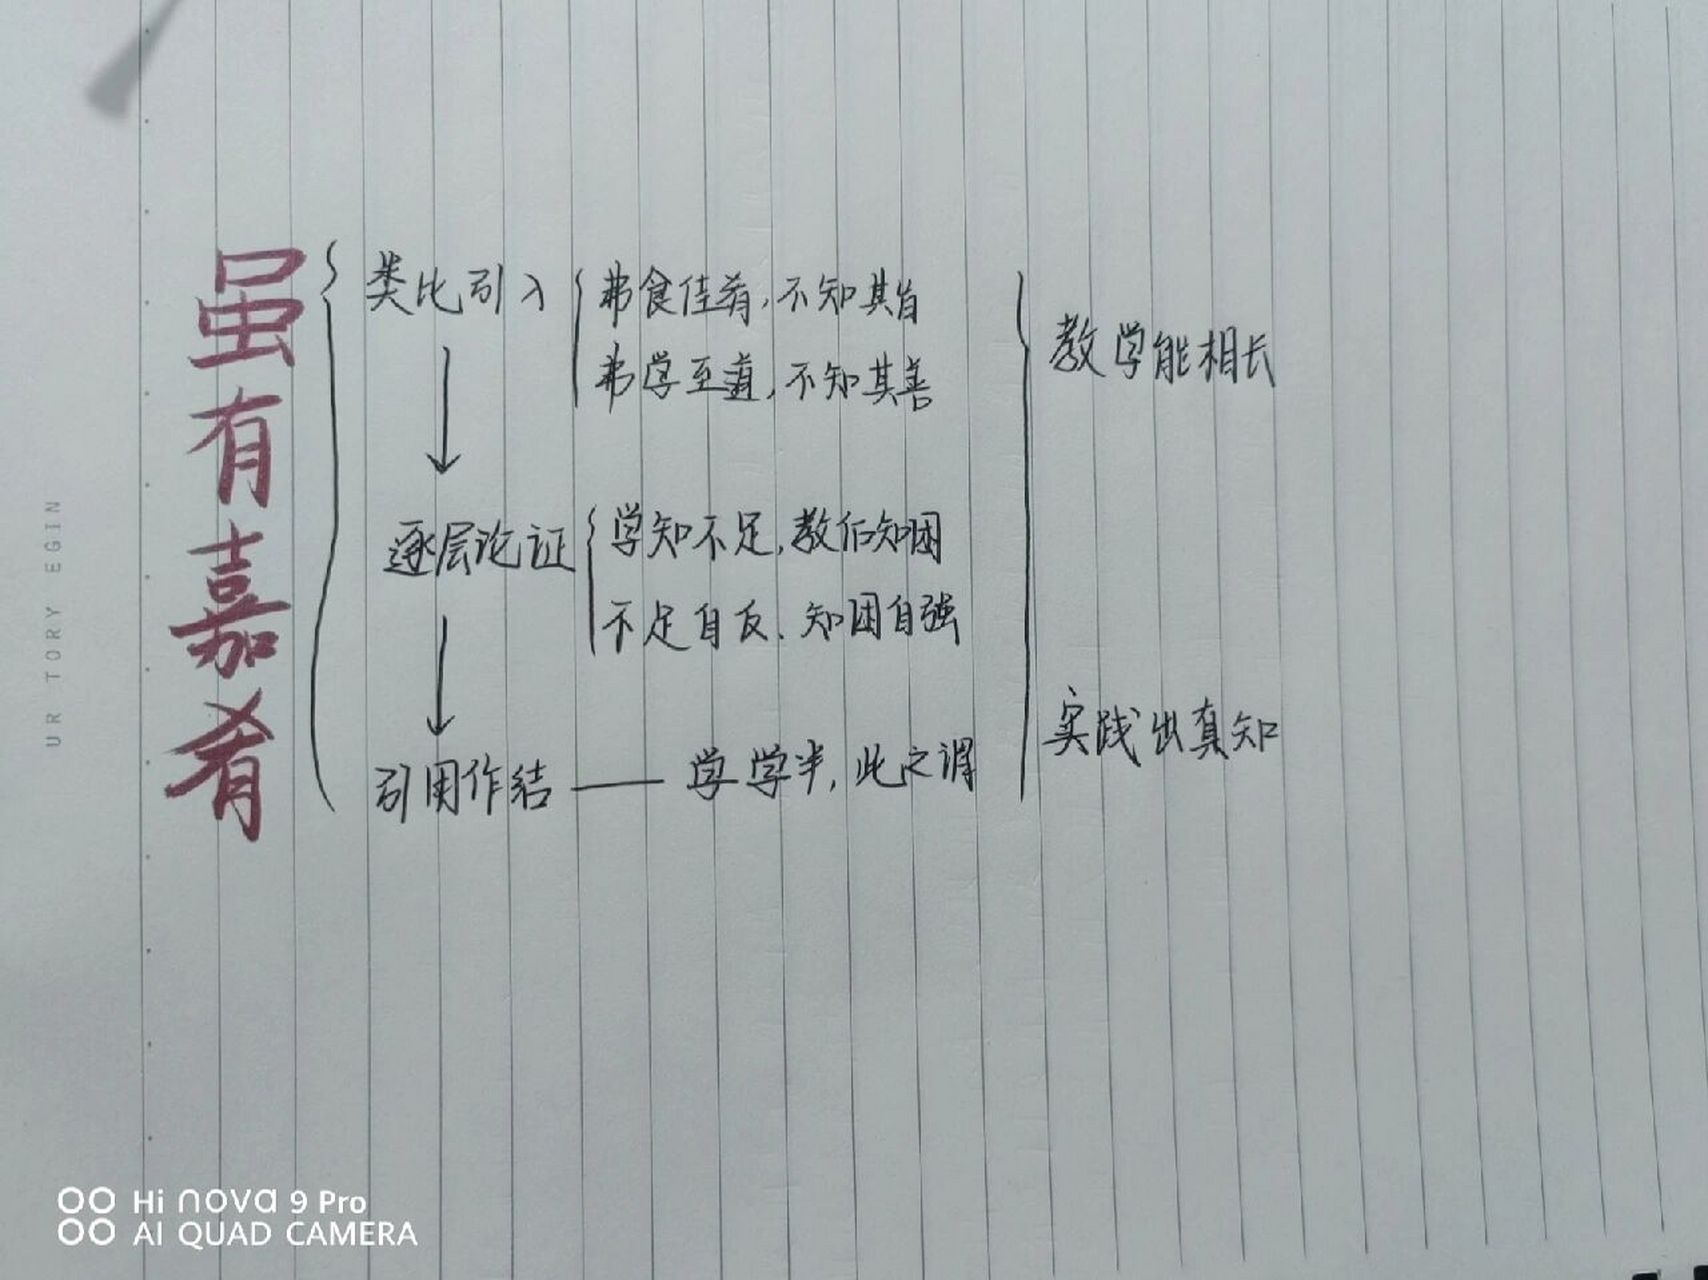 虽有嘉肴
类比引入
弗食佳肴，不知其旨
弗学至道，不知其善
逐层论证
学知不足，教后知困
不足自反、知困自强
引用作结——学学半，此之谓
教学能相长
实践出真知
UR TORY EGIN
Hi nova 9 Pro
AI QUAD CAMERA